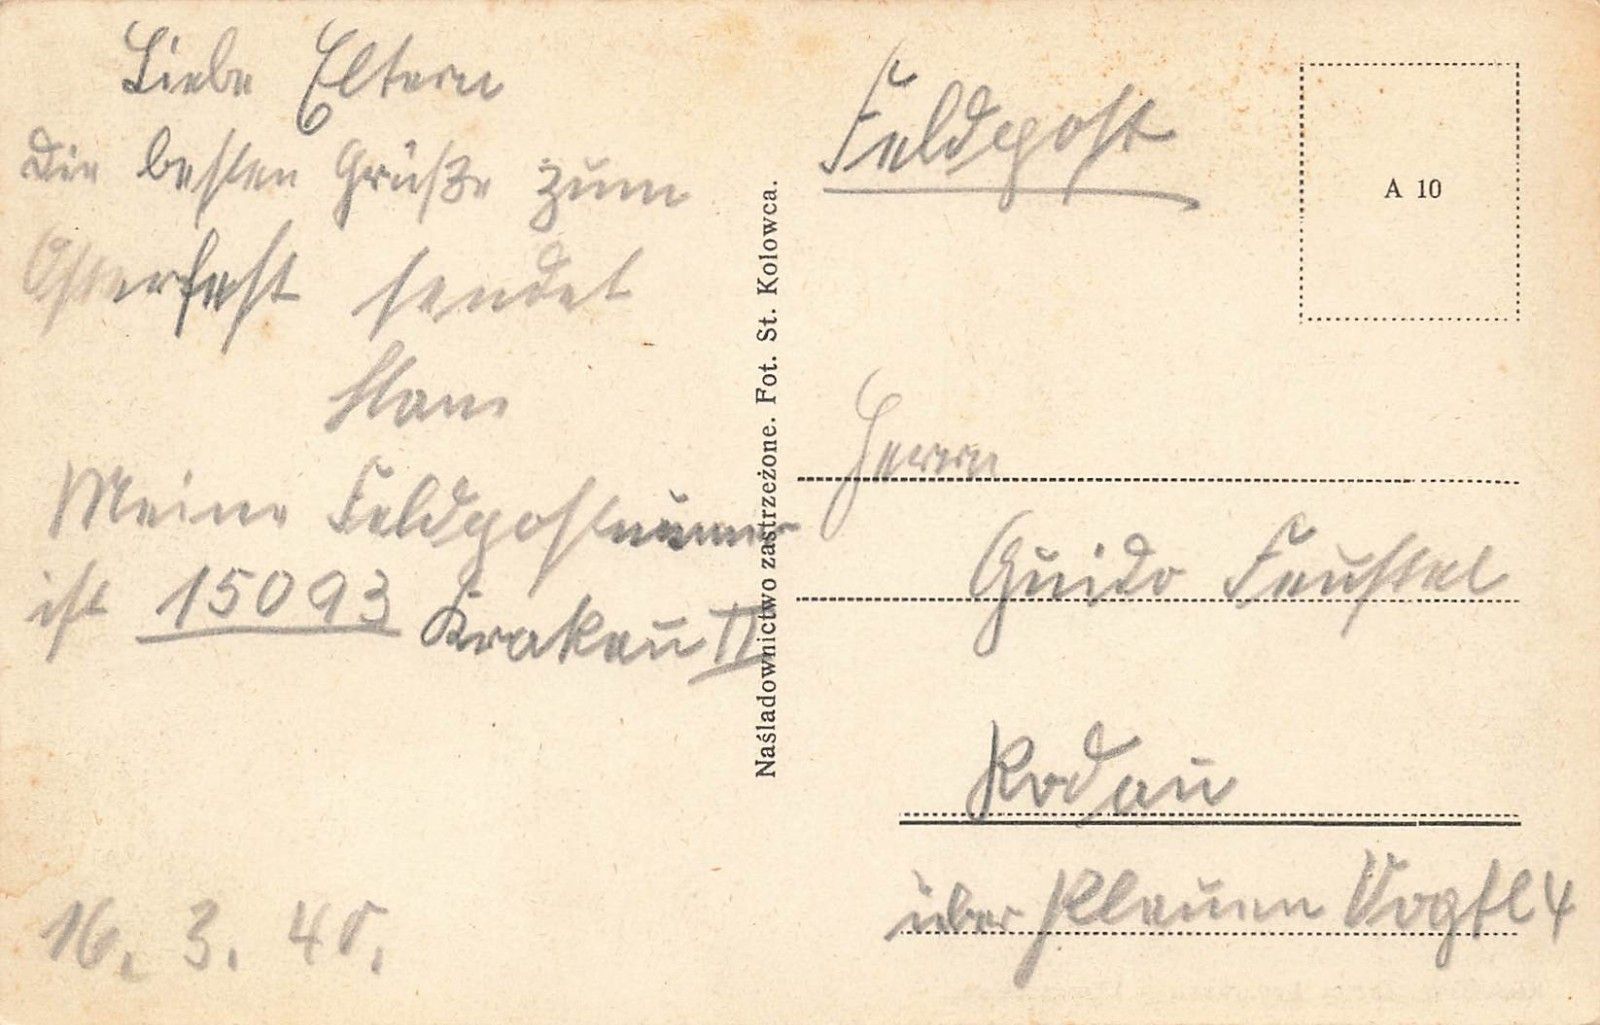 Liebe Eltern
Die besten Grüße zum
Osterfest sendet
Hans
Meine Feldpostnummer
ist 15093 Krakau II
16. 3. 40.
Naśladownictwo zastrzeżone. Fot. St. Kolowca.
Feldpost
A 10
Herrn
Guido Feustel
Rodau
über Plauen Vogtl 4